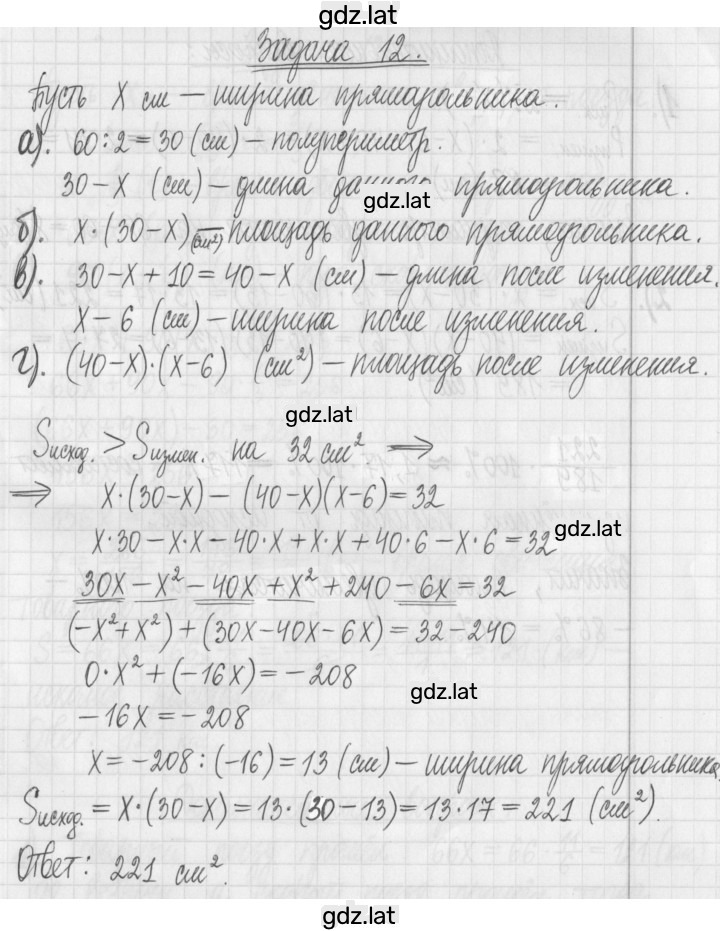 gdz.lat
Задача 12.
Пусть x см – ширина прямоугольника.
а). 60 : 2 = 30 (см) – полупериметр.
30 – x (см) – длина данного прямоугольника.
gdz.lat
б). x · (30 – x) (см²) – площадь данного прямоугольника.
в). 30 – x + 10 = 40 – x (см) – длина после изменения.
x – 6 (см) – ширина после изменения.
г). (40 – x) · (x – 6) (см²) – площадь после изменения.
gdz.lat
Sисход. > Sизмен. на 32 см² ⟹
⟹ x · (30 – x) – (40 – x)(x – 6) = 32
gdz.lat
x · 30 – x · x – 40 · x + x · x + 40 · 6 – x · 6 = 32
30x – x² – 40x + x² + 240 – 6x = 32
(–x² + x²) + (30x – 40x – 6x) = 32 – 240
0 · x² + (–16x) = –208
gdz.lat
–16x = –208
x = –208 : (–16) = 13 (см) – ширина прямоугольника,
Sисход. = x · (30 – x) = 13 · (30 – 13) = 13 · 17 = 221 (см²).
Ответ: 221 см².
gdz.lat